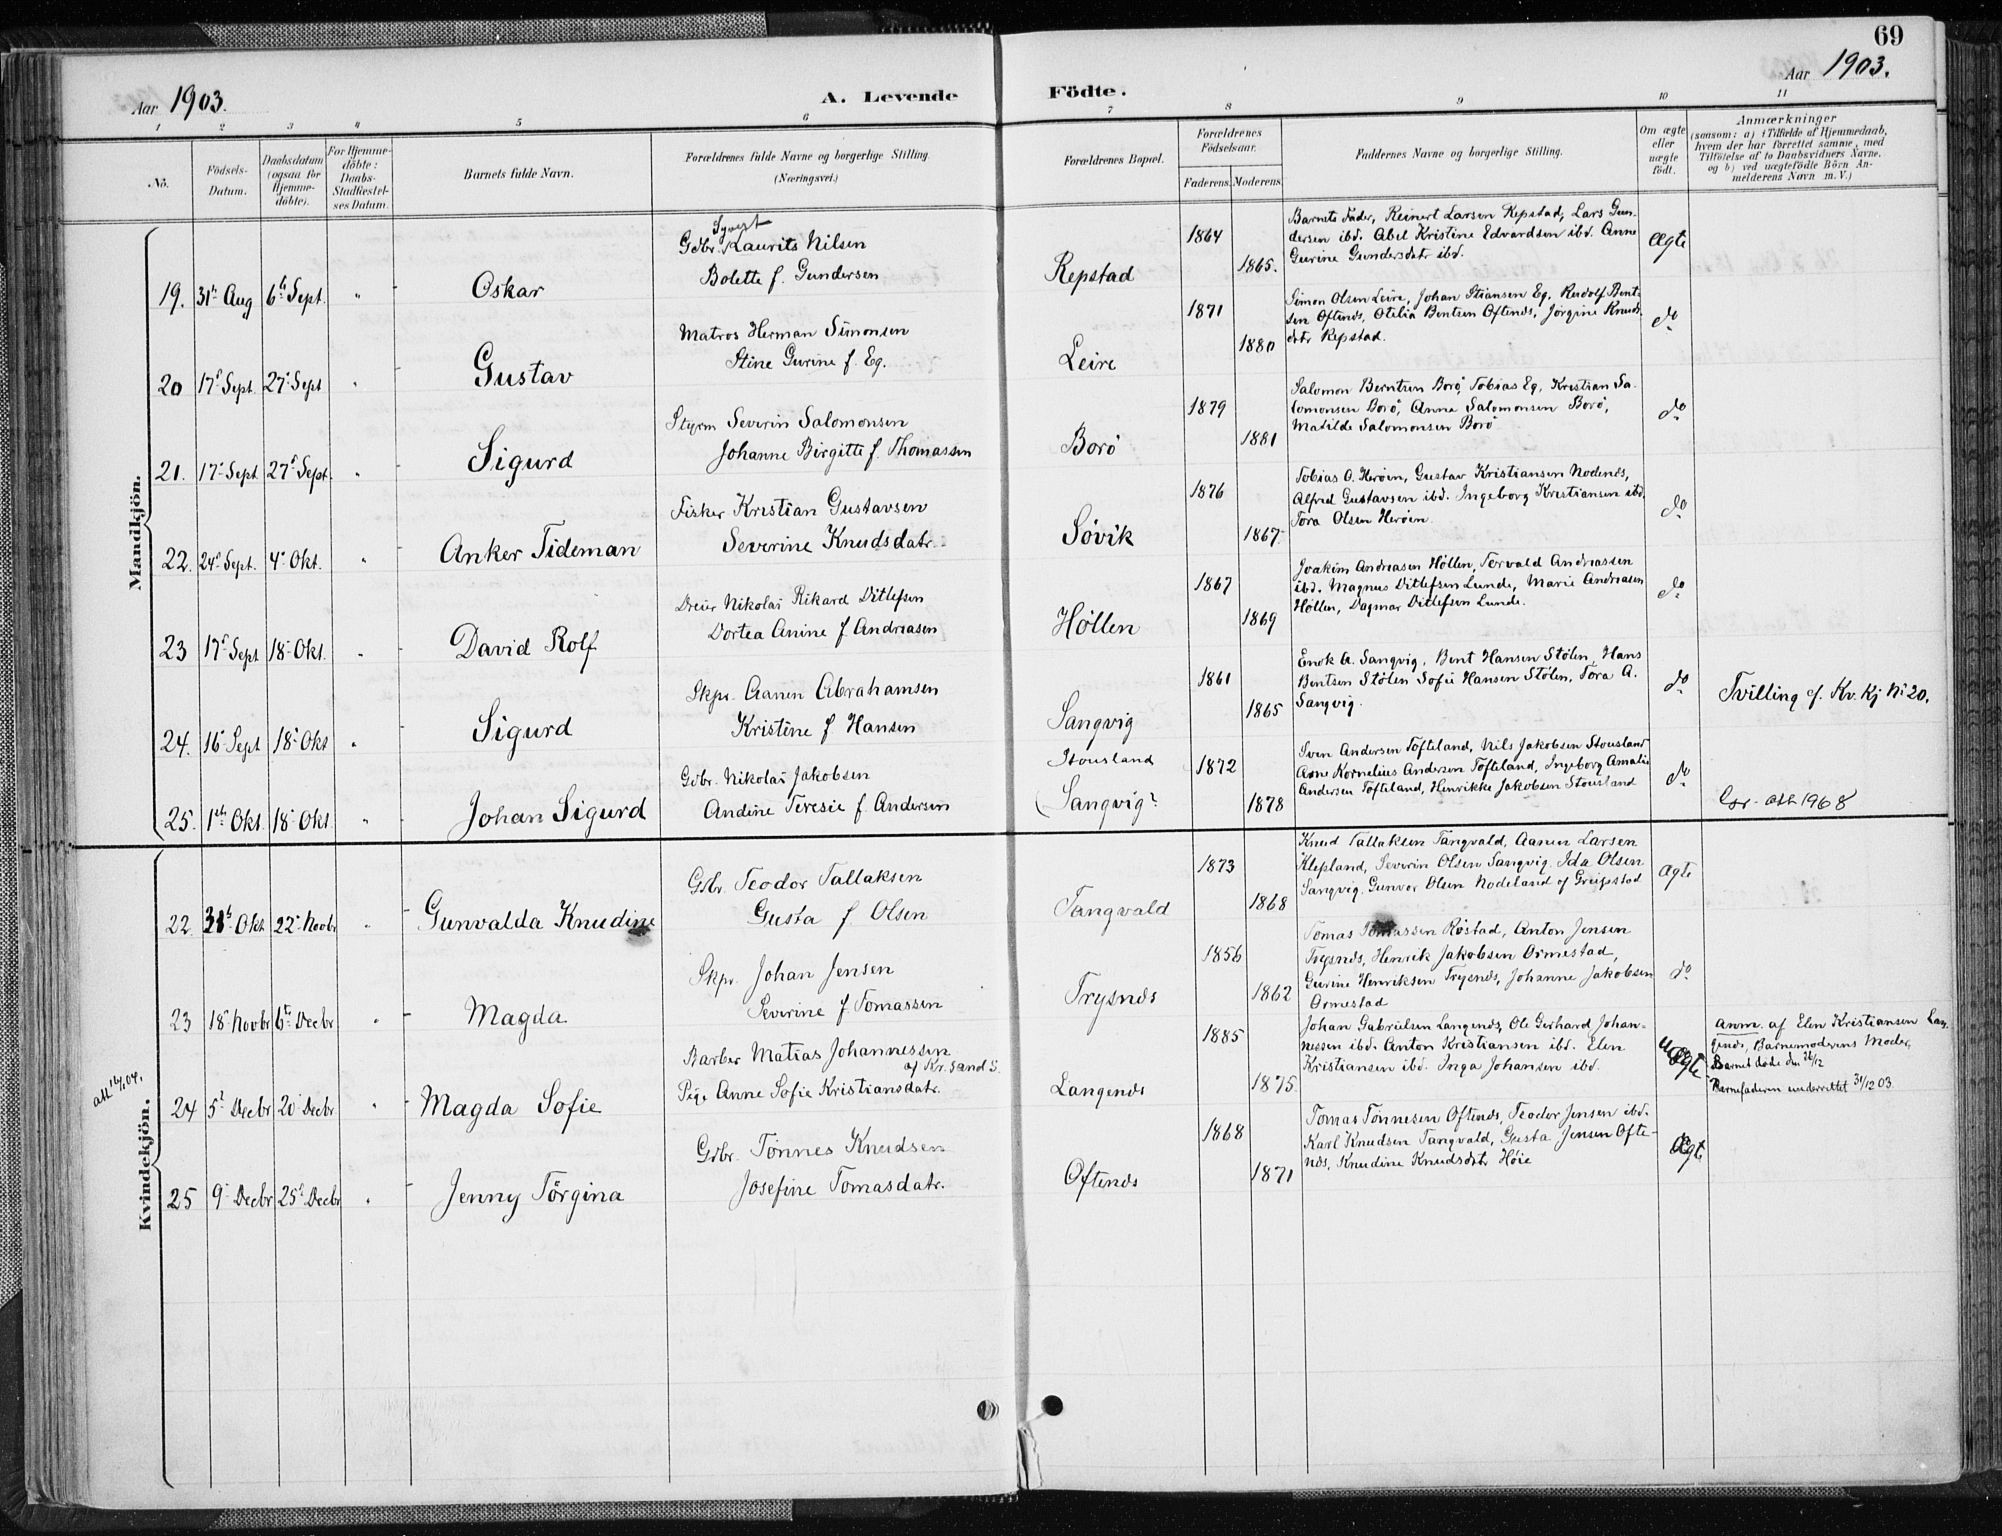 69
Aar 1903.
A. Levende Födte.
Aar 1903.
1 2 3 4 5 6 7 8 9 10 11
No.
Födsels-
Datum.
Daabsdatum
(ogsaa for
Hjemme-
döbte).
For Hjemme-
döbte:
Daabs-
Stadfæstel-
ses Datum.
Barnets fulde Navn.
Forældrenes fulde Navne og borgerlige Stilling.
(Næringsvei.)
Forældrenes Bopæl.
Forældrenes
Födselsaar.
Faderens. Moderens.
Faddernes Navne og borgerlige Stilling.
Om ægte
eller
uægte
födt.
Anmærkninger
(saasom: a) i Tilfælde af Hjemmedaab,
hvem der har forrettet samme, med
Tilföielse af to Daabsvidners Navne,
og b) ved uægtefödte Börn An-
melderens Navn m. V.)
Mandkjön.
19. 31te Aug 6te Sept. " Oskar
Syvert
Gdbr. Laurits Nilsen
Bolette f. Gundersen
Repstad
1864
1865.
Barnets Fader, Reinert Larsen Repstad, Lars Gun-
dersen ibd. Abel Kristine Edvardsen ibd. Anne
Gurine Gundersdtr ibd.
Ægte
20 17de Sept. 27de Sept " Gustav
Matros Herman Simonsen
Stine Gurine f. Eg.
Leire
1871
1880
Simon Olsen Leire, Johan Stiansen Eg, Rudolf Bent-
sen Oftenes, Otilia Bentsen Oftenes, Jørgine Knuds
dtr Repstad.
do
21. 17de Sept 27de Sept. " Sigurd
Styrm Severin Salomonsen
Johanne Birgitte f. Thomassen
Borø
1879
1881
Salomon Berntsen Borø, Tobias Eg, Kristian Sa-
lomonsen Borø, Anna Salomonsen Borø,
Matilde Salomonsen Borø
do
22. 24de Sept. 4de Okt. " Anker Tideman
Fisker Kristian Gustavsen
Severine Knudsdatr.
Søvik
1876
1867.
Tobias O. Herøen, Gustav Kristiansen Nodenes,
Alfred Gustavsen ibd. Ingeborg Kristiansen ibd.
Tora Olsen Herøen
do
23 17de Sept 18de Okt. " David Rolf
Dreier Nikolai Rikard Ditlefsen
Dortea Anine f Andreasen
Høllen
1867
1869
Joakim Andreasen Høllen, Torvald Andreassen
ibd. Magnus Ditlefsen Lunde, Marie Andreasen
Høllen, Dagmar Ditlefsen Lunde.
do
24. 16de Sept 18de Okt " Sigurd
Skpr. Aanen Abrahamsen
Kristine f Hansen
Sangvig
1861
1865
Enok A. Sangvig, Bent Hansen Stølen, Hans
Bentsen Stølen Sofie Hansen Stølen, Tora A.
Sangvig.
do
Tvilling cf. Kv. Kj No 20.
25. 1ste Okt. 18de Okt. " Johan Sigurd
Gdbr. Nikolai Jakobsen
Andine Teresie f Andersen
Stousland
(Sangvig?
1872
1878
Sven Andersen Tofteland, Nils Jakobsen Stousland
Arne Kornelius Andersen Tofteland, Ingeborg Amalie
Andersen Tofteland, Henrikke Jakobsen Stousland
do
att 1968
Kvindekjön.
22. 31te Okt 22de Novbr " Gunvalda Knudine
Gdbr. Teodor Tallaksen
Gusta f Olsen
Tangvald
1873
1868
Knud Tallaksen Tangvald, Aanen Larsen
Klepland, Severin Olsen Sangvig, Ida Olsen
Sangvig, Gunvor Olsen Nodeland af Greipstad
Ægte
23 18de Novbr 6te Decbr " Magda
Skpr. Johan Jensen
Severine f Tomassen
Trysnes
1856
1862
Tomas Tomassen Røstad, Anton Jensen
Trysnes, Henrik Jakobsen Ormestad,
Gurine Henriksen Trysnes, Johanne Jakobsen
Ormestad
do
att 16/1 04.
24 5te Decbr 20de Decbr " Magda Sofie
Barber Matias Johannessen
af Kr.sand S.
Pige Anne Sofie Kristiansdatr.
Langenes
1885
1875.
Johan Gabrielsen Langenes, Ole Gerhard Johan-
nessen ibd. Anton Kristiansen ibd. Elen
Kristiansen ibd. Inga Johansen ibd.
uægte
Anm. af Elen Kristiansen Lan-
genes, Barnemoderens Moder,
Barnet døde den 26/12
Barnefaderen underrettet 31/12 03
25 9de Decbr 25de Decbr " Jenny Törgina
Gdbr. Tönnes Knudsen
Josefine Tomasdatr.
Oftenes
1868
1871
Tomas Tönnesen Oftenes, Teodor Jensen ibd.
Karl Knudsen Tangvald, Gusta Jensen Ofte-
nes, Knudine Knudsdtr Høie
Ægte